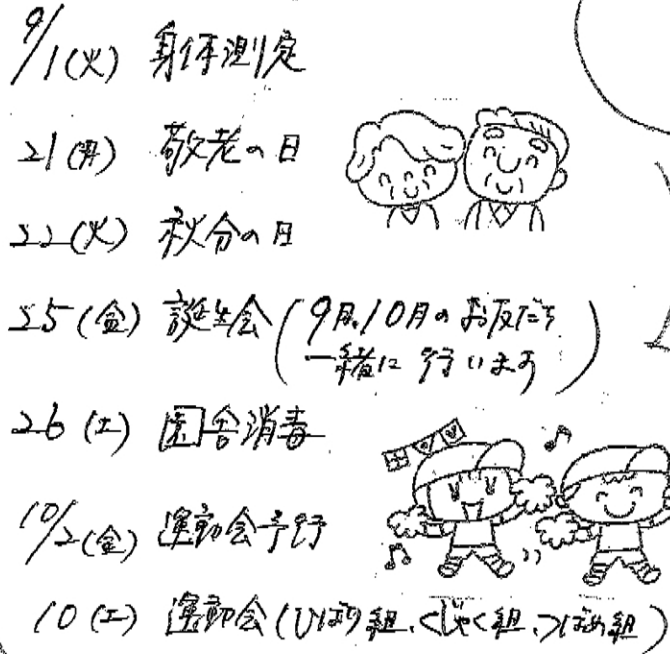 9/1(火) 身体測定
21(月) 敬老の日
22(火) 秋分の日
25(金) 誕生会(9月、10月のお友だち
一緒に行います)
26(土) 園舎消毒
10/2(金) 運動会予行
10(土) 運動会(ひばり組、くじゃく組、つばめ組)